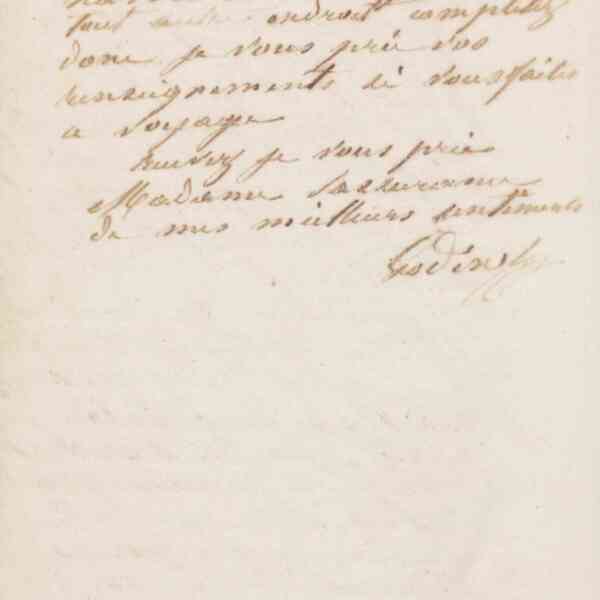 tout autre endroit complétez
donc je vous prie vos
renseignements si vous faites
ce voyage
Agréez je vous prie
Madame l'assurance
de mes meilleurs sentiments
Godin